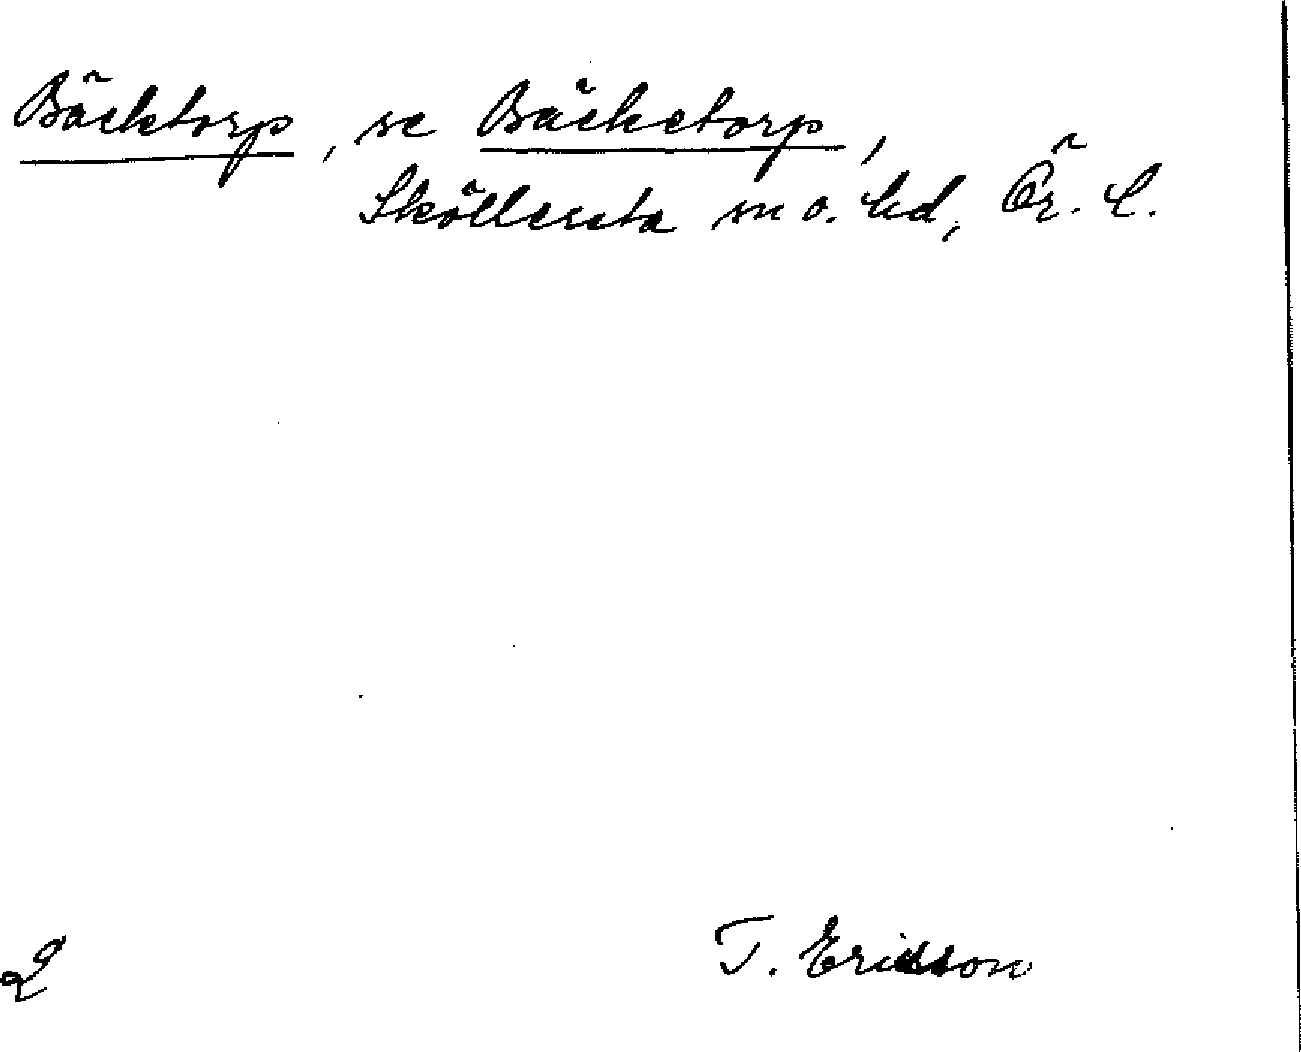 Bäcktorp, se Bäcketorp,
Sköllersta sn o. hd, Ör. l.
T. Ericsson